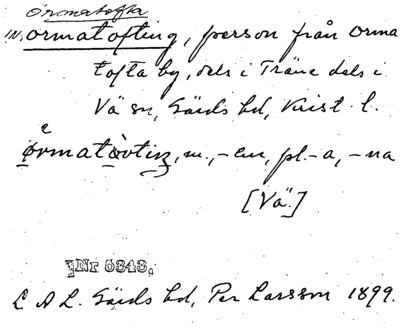 Ormatofta
IN. ormatofting, person från Orma
tofta by, dels i Träne dels i
Vä sn, Gärds hd, Krist. l.
ørmatòvtiŋ, m., -en, pl. -a, -na
[Vä.]
Nr 5343.
L A L. Gärds hd, Per Larsson 1899.